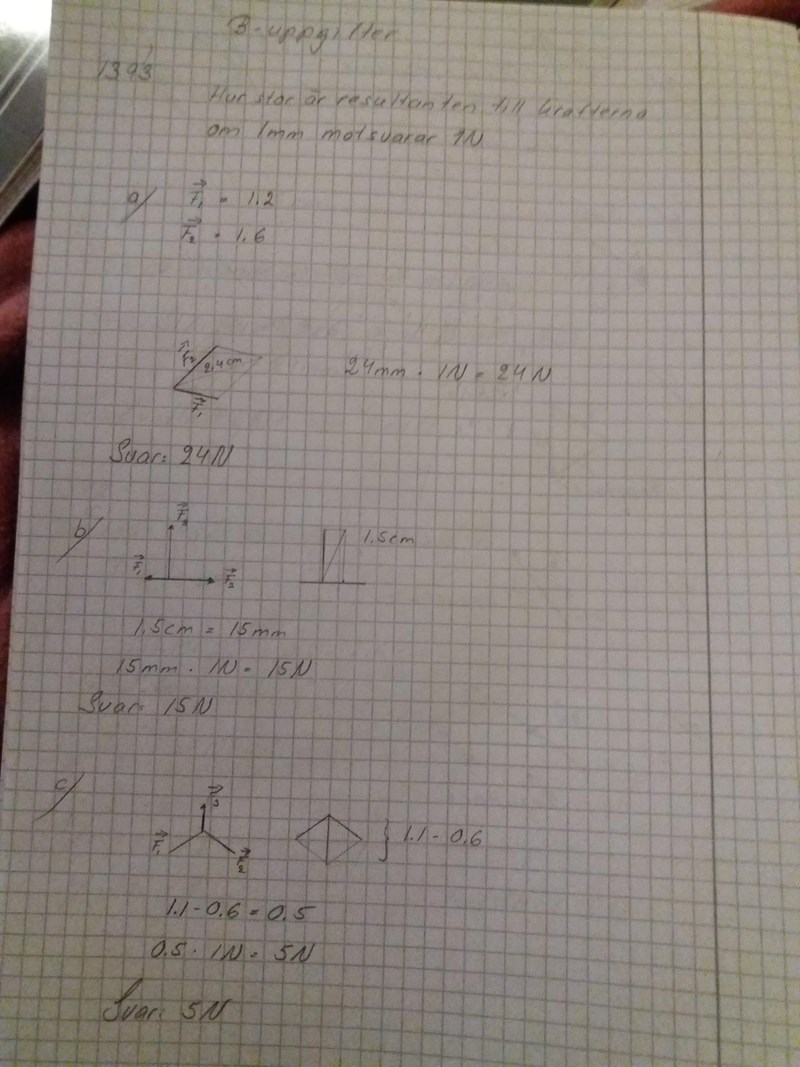 B-uppgifter
1393
Hur stor är resultanten till krafterna
om 1mm motsvarar 1N
a) F₁ = 1.2
F₂ = 1.6
F₂ 2,4cm
F₁
24mm · 1N = 24N
Svar: 24N
b) F₃
F₁ F₂
1.5cm
1.5cm = 15mm
15mm · 1N = 15N
Svar: 15N
c) F₃
F₁ F₂
} 1.1 - 0.6
1.1 - 0.6 = 0.5
0.5 · 1N = 5N
Svar: 5N